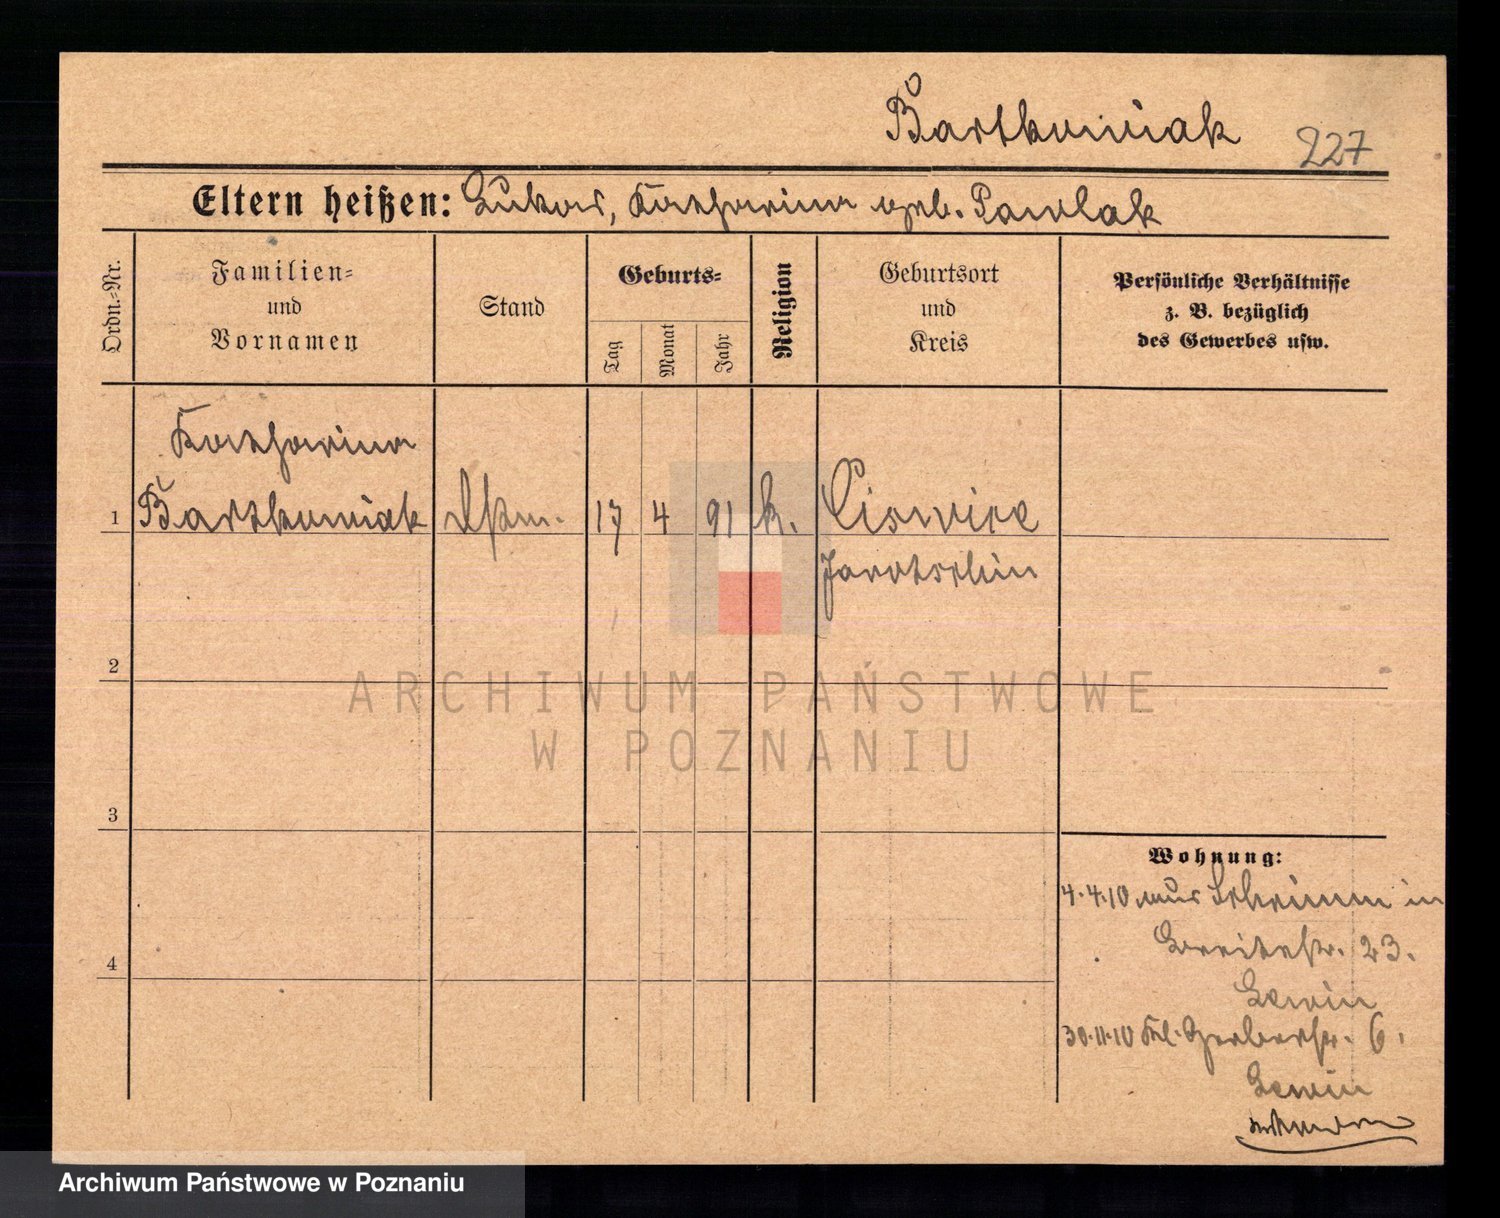 Bartkowiak 227
Eltern heißen: Lukas, Katharina geb. Pawlak
Ordn.=Nr.
Familien=
und
Vornamen
Stand
Geburts=
Tag
Monat
Jahr
Religion
Geburtsort
und
Kreis
Persönliche Verhältnisse
z. B. bezüglich
des Gewerbes usw.
Katharina
1 Bartkowiak 17 4 91 k. Ciswica
Jarotschin
2
3
4
Wohnung:
4.4.10 aus Schrimm in
Breitestr. 23.
Lewin
30.11.10 Kl. Gerberstr. 6.
Lewin
ARCHIWUM PAŃSTWOWE
W POZNANIU
Archiwum Państwowe w Poznaniu